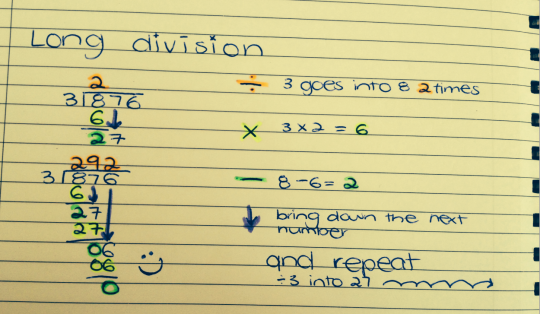 Long division
2
3 876
6
27
292
3 876
6
27
27
06
06
0
÷ 3 goes into 8 2 times
× 3 × 2 = 6
− 8 − 6 = 2
↓ bring down the next
number
and repeat
÷3 into 27